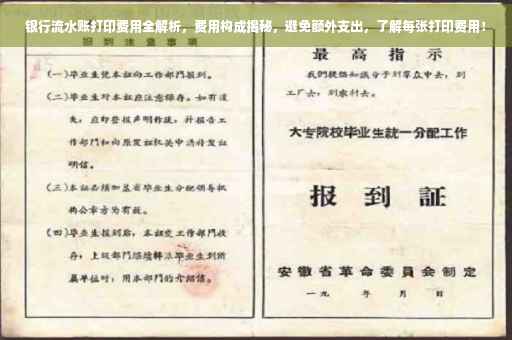 银行流水账打印费用全解析，费用构成揭秘，避免额外支出，了解每张打印费用！
报到注意事项
(一)毕业生凭本证向工作部门报到。
(二)毕业生对本证应注意保存。如有遗
失，应即登报声明作废，并报告工
作部门和向原发证机关申请补发证
明信。
(三)本证必须加盖省毕业生分配领导机
构公章方为有效。
(四)毕业生报到后，本证交工作部门收
存；上级部门继续转派毕业生到所
属单位时，用本部门的介绍信。
最高指示
我们提倡知识分子到群众中去，到
工厂去，到农村去。
大专院校毕业生统一分配工作
报到证
安徽省革命委员会制定
一九 年 月 日